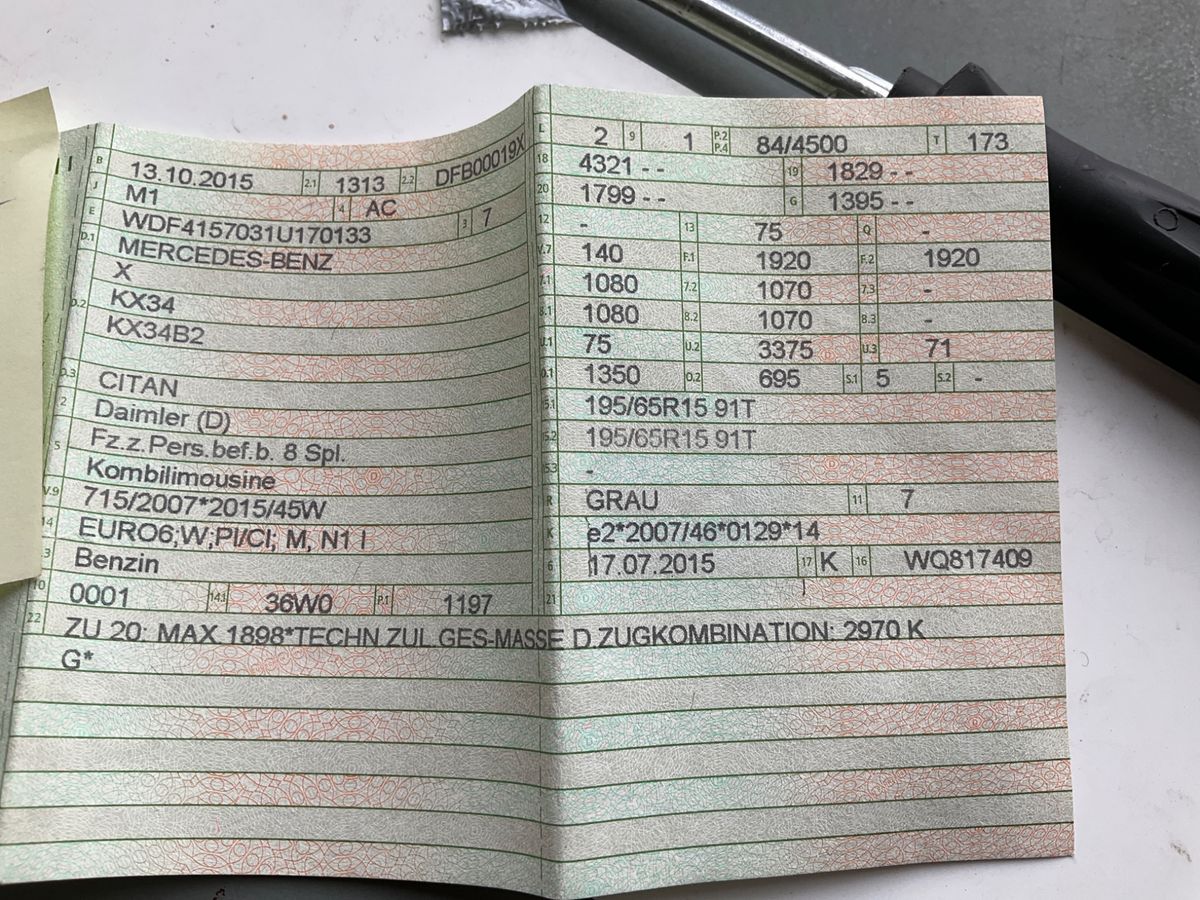 B 13.10.2015 2.1 1313 2.2 DFB00019X
J M1 4 AC
E WDF4157031U170133 3 7
D.1 MERCEDES-BENZ
X
D.2 KX34
KX34B2
D.3 CITAN
2 Daimler (D)
5 Fz.z.Pers.bef.b. 8 Spl.
Kombilimousine
V.9 715/2007*2015/45W
14 EURO6;W;PI/CI; M, N1 I
3 Benzin
10 0001 14.1 36W0 P.1 1197
L 2 9 1 P.2 P.4 84/4500 T 173
18 4321 - - 19 1829 - -
20 1799 - - G 1395 - -
12 - 13 75 Q -
V.7 140 F.1 1920 F.2 1920
7.1 1080 7.2 1070 7.3 -
8.1 1080 8.2 1070 8.3 -
U.1 75 U.2 3375 U.3 71
O.1 1350 O.2 695 S.1 5 S.2 -
15.1 195/65R15 91T
15.2 195/65R15 91T
15.3 -
R GRAU 11 7
K e2*2007/46*0129*14
6 17.07.2015 17 K 16 WQ817409
21
22 ZU 20: MAX.1898*TECHN.ZUL.GES-MASSE D.ZUGKOMBINATION: 2970 K
G*